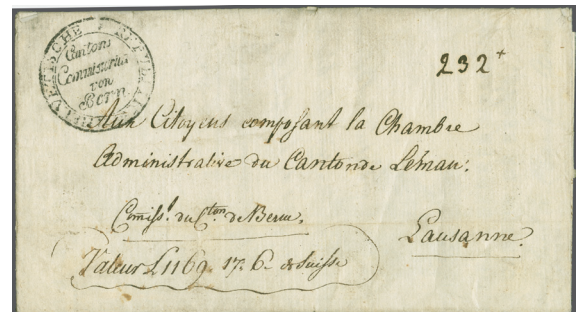 HELVETISCHE REPUBLIK
Cantons
Commissariat
von
Bern
232+
Aux Citoyens composant la Chambre
Administrative du Canton de Léman:
Comiss.t du C.ton de Berne.
Lausanne.
Valeur L 1169. 17. 6. de Suisse